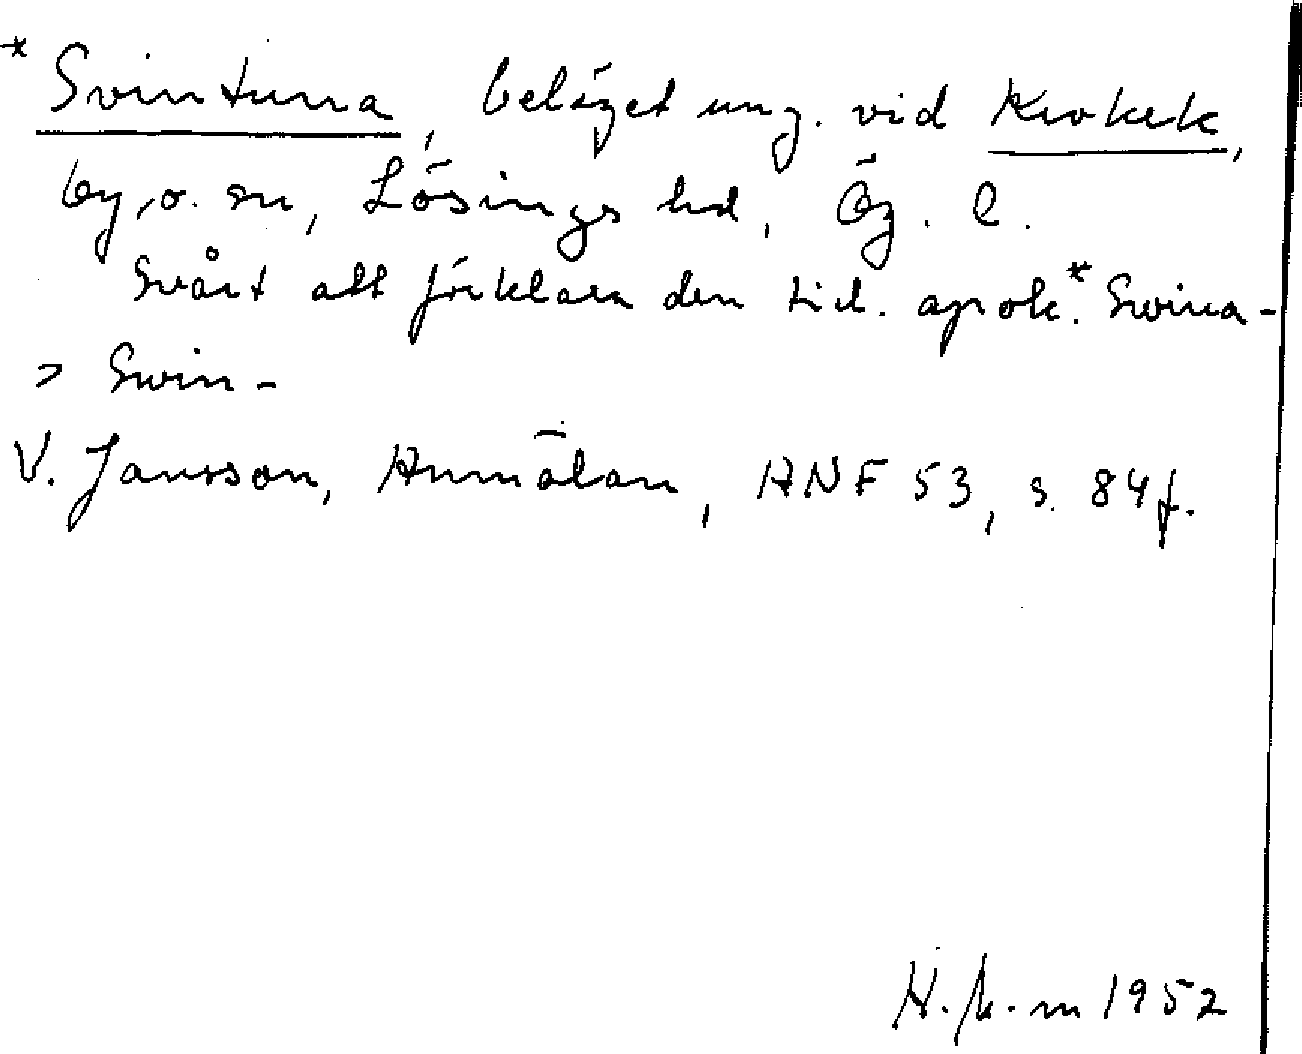 * Svintuna, beläget ung. vid Krokek,
by, o. sn, Lösings hd, Ög. l.
Svårt att förklara den tid. apok. * Swina-
> Swin-
V. Jansson, Anmälan, ANF 53, s. 84 f.
1952